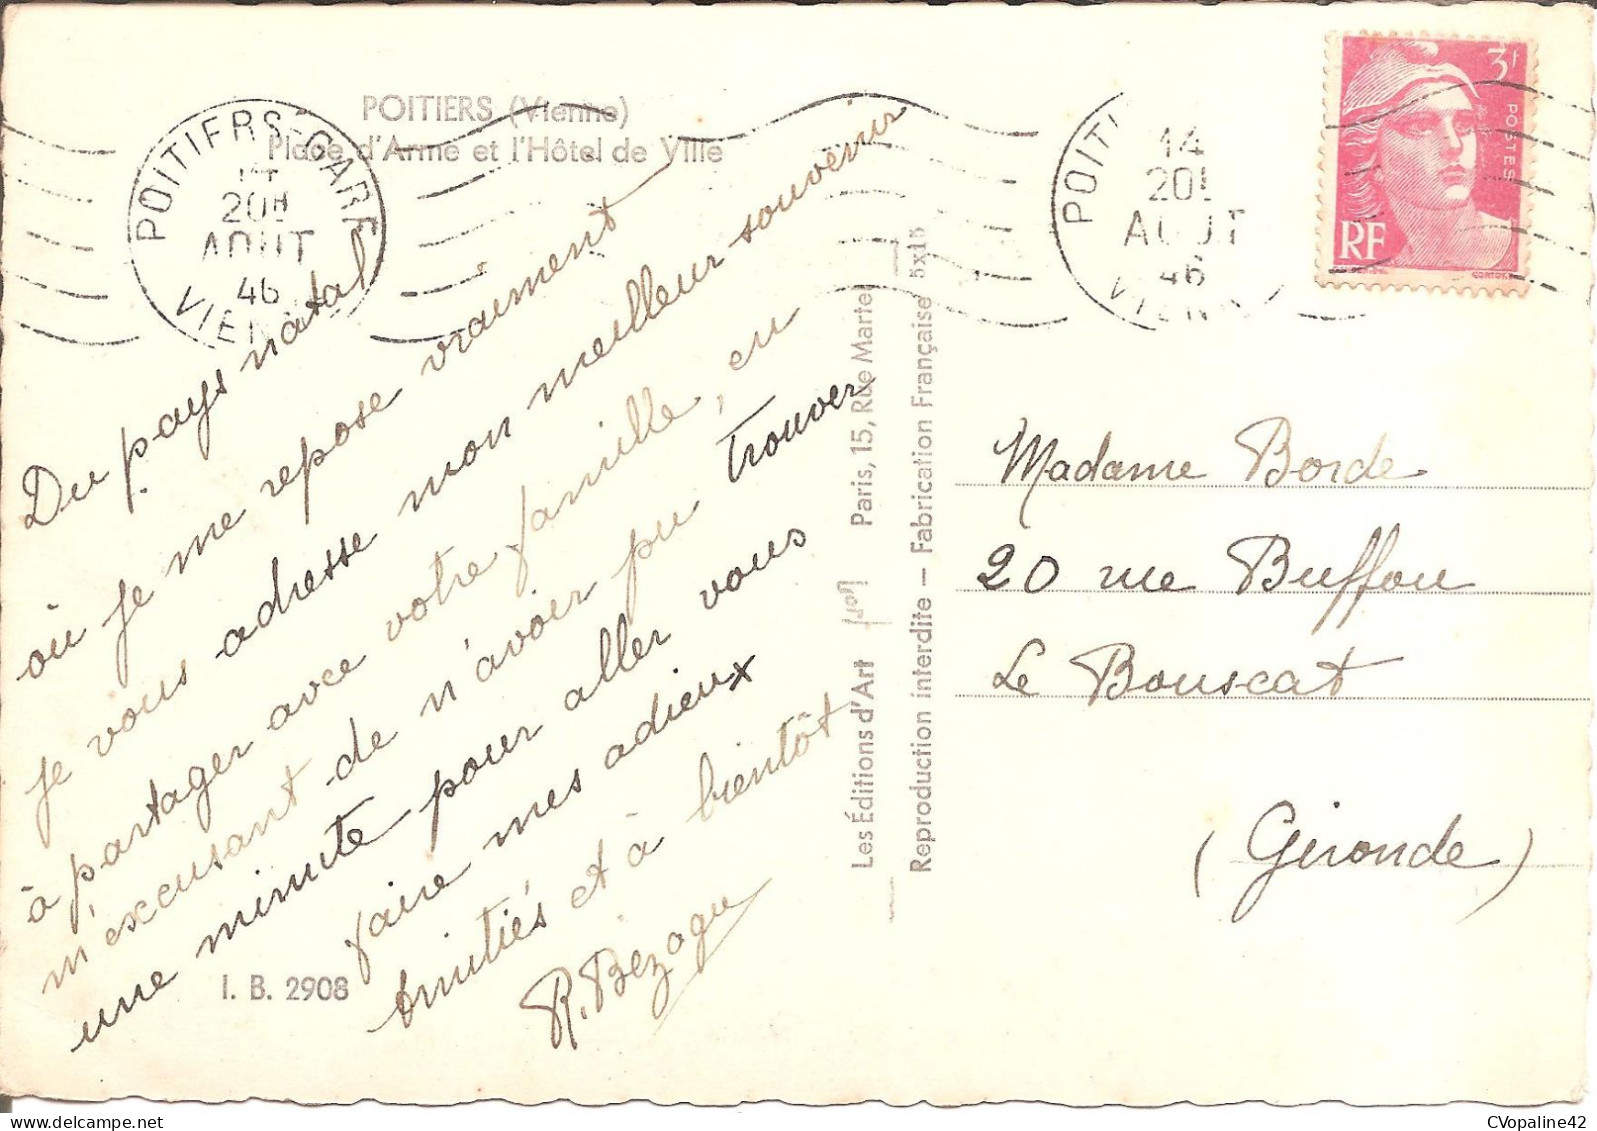 POITIERS (Vienne)
Place d'Arme et l'Hôtel de Ville
POITIERS-GARE
20H
AOUT
46
VIENNE
POITI
14
20
AOUT
46
VIENN
3f
POSTES
RF
Du pays natal
où je me repose vraiment
je vous adresse mon meilleur souvenir
à partager avec votre famille, en
m'excusant de n'avoir pu trouver
une minute pour aller vous
faire mes adieux
Amitiés et à bientôt
R. Bézagu
I. B. 2908
Les Éditions d'Art Paris, 15, Rue Martel
Reproduction interdite — Fabrication Française
Madame Borde
20 rue Buffon
Le Bouscat
(Gironde)
CVopaline42